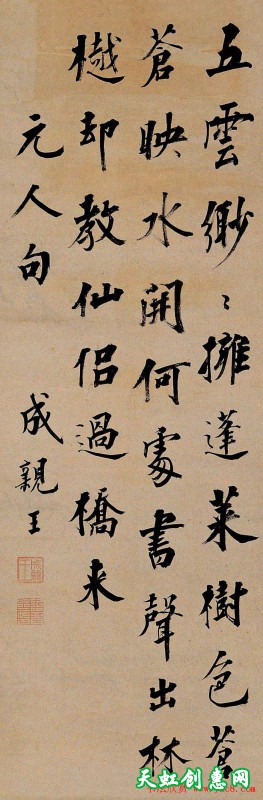 五雲緲〻擁蓬萊樹色蒼
蒼映水開何處書聲出林
樾却教仙侣過橋来
元人句
成親王
天虹创意网